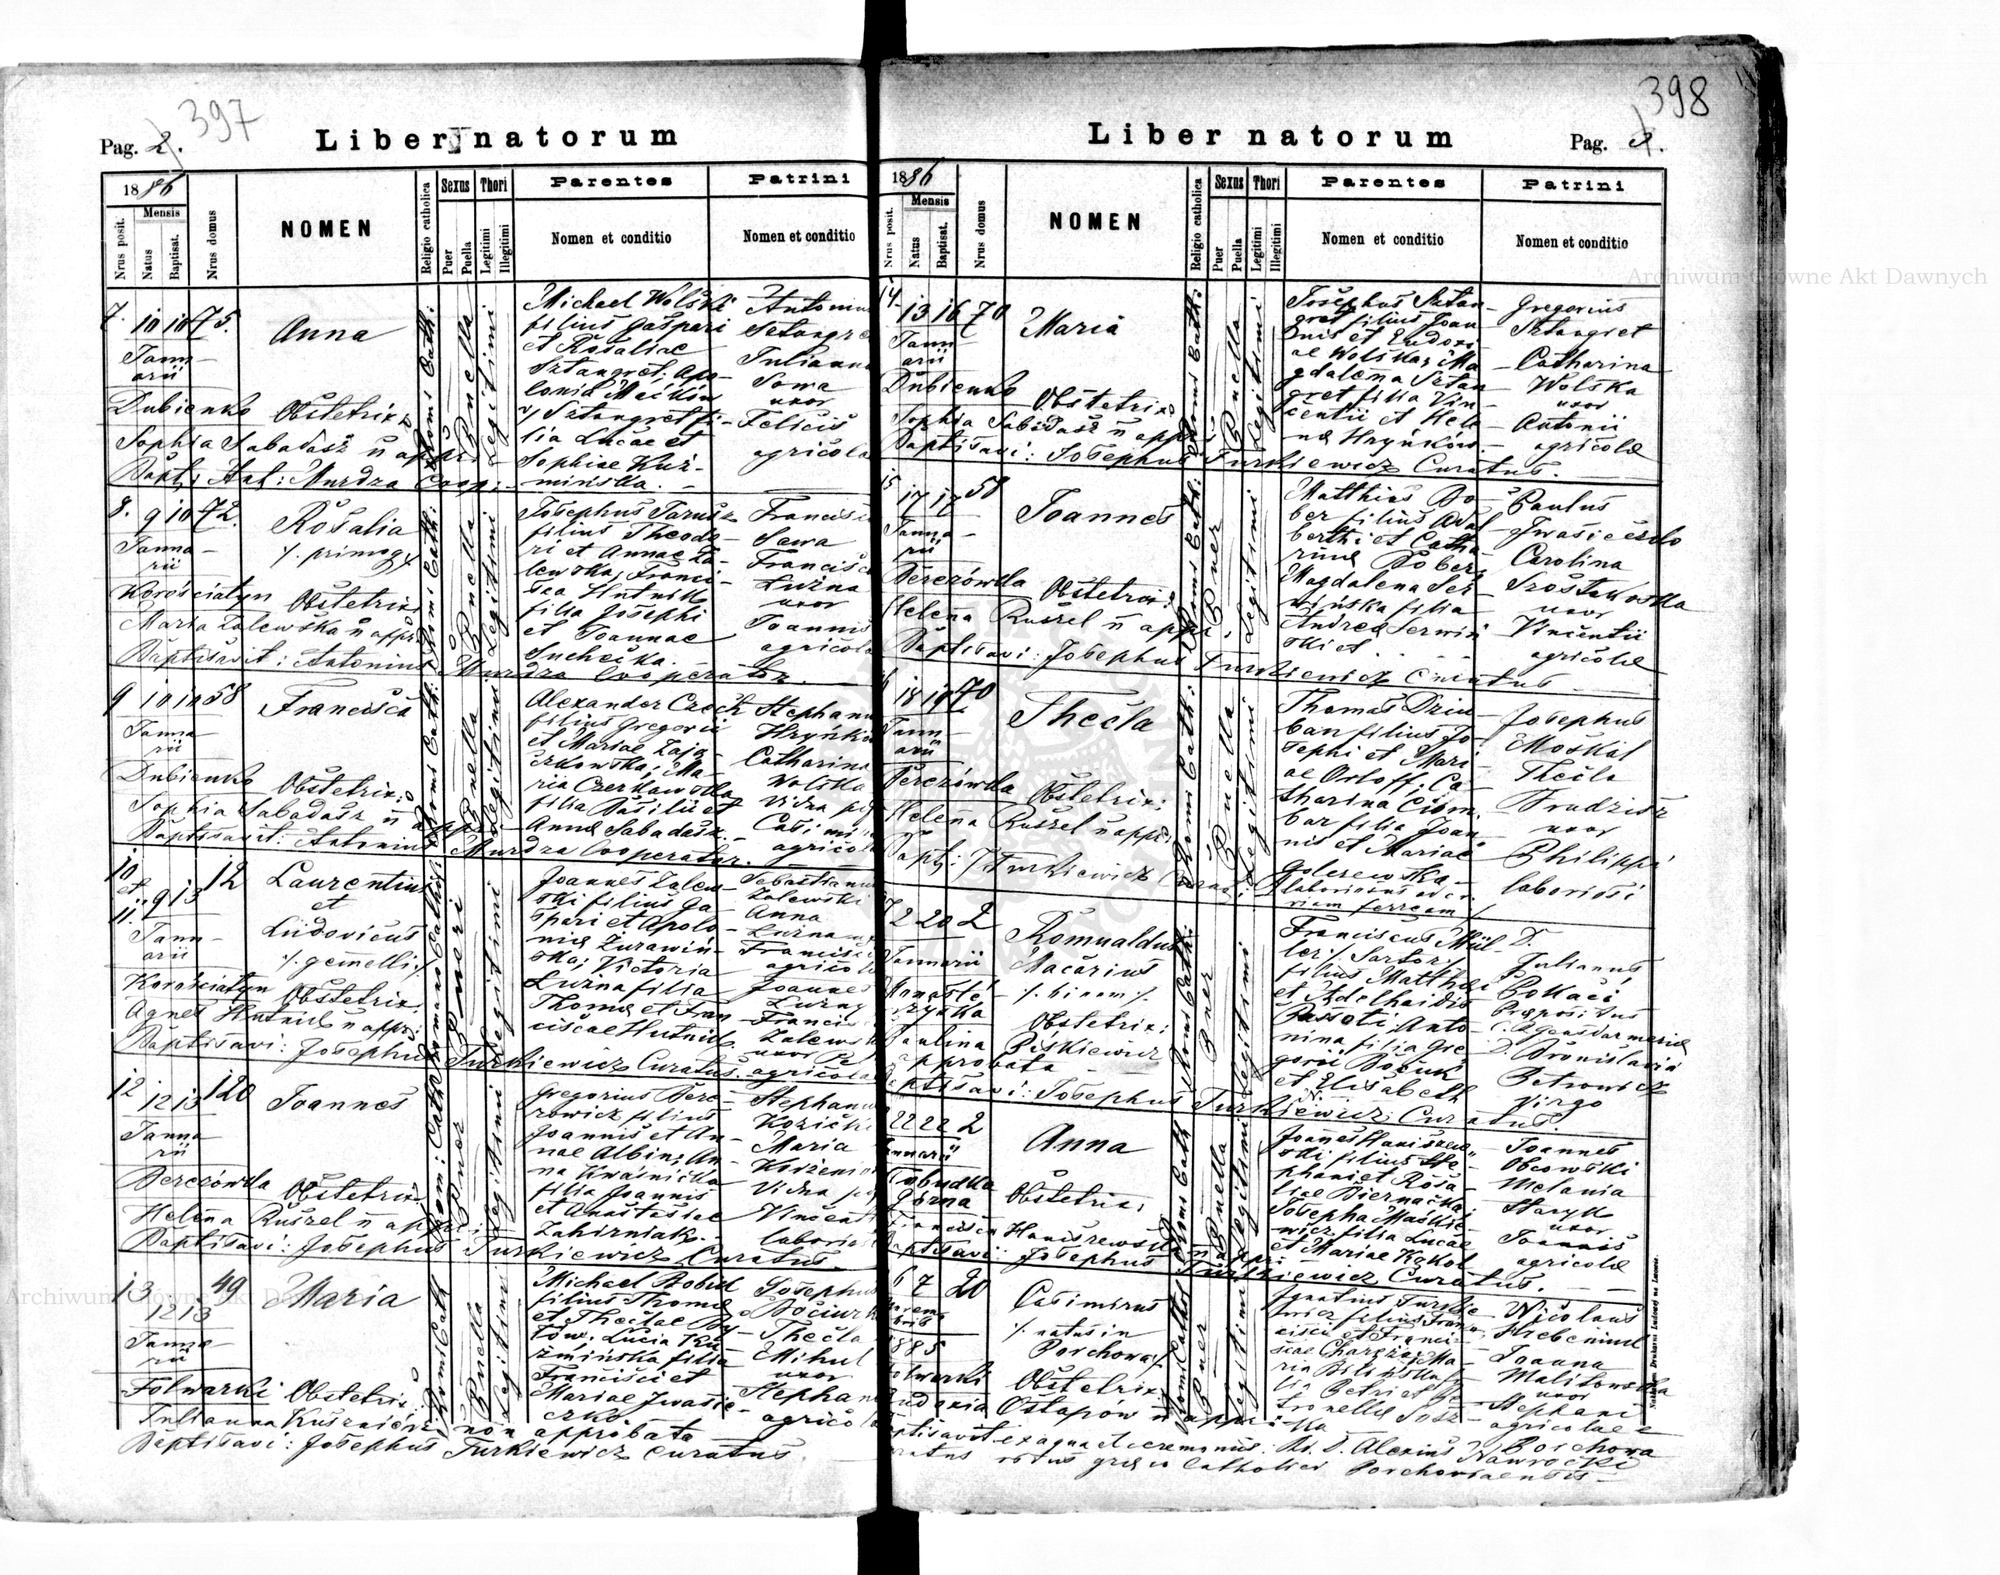 397
Pag. 2.
Liber natorum
1886
Mensis
Nrus posit.
Natus
Baptisat.
Nrus domus
NOMEN
Religio catholica
Sexus
Puer
Puella
Thori
Legitimi
Illegitimi
Parentes
Nomen et conditio
Patrini
Nomen et conditio
7. 10 10 75.
Janu-
arii
Anna
Dubienko Obstetrix:
Sophia Sabadasz
Bapt: Ant: Murdza Coop:
Rom: Cath:
Puella
Legitimi
Michael Wolski
filius Gaspari
et Rosaliae
Sztangret; Apo-
lonia
Sztangret fi-
lia Lucae et
Sophiae Kuź-
mińska. -
Antonius
Sztangre
Julianna
Sowa
uxor
Felicis
agricola
8. 9 10 72.
Janua-
rii
Rosalia
/. primog /.
Korościatyn Obstetrix
Maria Zalewska n appr
Baptisavit: Antonius Murdza Cooperator.
Rom: Cath:
Puella
Legitimi
Josephus Jarusz
filius Theodo-
ri et Annae Za-
lewska; Franci-
sca Hutnik
filia Josephi
et Joannae
Suchecka.
Francisc
Sawa
Francisca
Luzna
uxor
Joannis
agricola
9 10 10 58
Janua
rii
Francisca
Dubienko Obstetrix:
Sophia Sabadasz n appr
Baptisavit: Antonius Murdza Cooperator.
Romi Cath:
Puella
Legitimi
Alexander Czech
filius Gregorii
et Mariae Zają-
czkowska; Ma-
ria Czerkawska
filia Basilii et
Annae Sabadasz.
Stephanu
Hrynkó
Catharina
Wolska
Vidua
Casimi
agricol
10
et
11. 9 13 12
Janu-
arii
Laurentius
et
Ludovicus
/. gemelli /.
Korościatyn Obstetrix
Agnes Hutnik n appr:
Baptisavi: Josephus Turkiewicz Curatus.
Romano Catholic
Pueri
Legitimi
Joannes Zalew-
ski filius Ga-
spari et Apolo-
niae Żurawiń-
ska; Victoria
Luzna filia
Thomae et Fran-
ciscae Hutnik
Sebastianus
Zalewski
Anna
Luzna
Francisc
agrico
Joannes
Luzny
Francis
Zalewsk
uxor
agricola
12 12 13 120
Janua
rii
Joannes
Berezówka Obstetrix
Helena Ruszel n appr:
Baptisavi: Josephus Turkiewicz Curatus.
Rom: Cath
Puer
Legitimi
Gregorius Bere-
zowicz filius
Joannis et An-
nae Albin; An-
na Kwaśnicka
filia Joannis
et Anastasiae
Zahirniak.
Stephanu
Kozick
Maria
Korżeni
Vidua
Vincent
laborio
13 12 13 49
Janua
rii
Maria
Folwarki Obstetrix:
Julianna Kuśnierz non approbata
Baptisavi: Josephus Turkiewicz Curatus.
Rom: Cath
Puella
Legitimi
Michael Bobik
filius Thomae
et Theclae By-
tów. Lucia Ku-
zmińska filia
Francisci et
Mariae Iwasie-
czko
Josephus
Bociurk
Thecla
Mihul
uxor
Stephan
agrico
398
Liber natorum
Pag. 3.
1886
Mensis
Nrus posit.
Natus
Baptisat.
Nrus domus
NOMEN
Religio catholica
Sexus
Puer
Puella
Thori
Legitimi
Illegitimi
Parentes
Nomen et conditio
Patrini
Nomen et conditio
14. 13 16 70
Janu
arii
Maria
Dubienko Obstetrix
Sophia Sabadasz n appr
Baptisavi: Josephus Turkiewicz Curatus.
Romi Cath:
Puella
Legitimi
Josephus Sztan-
gret filius Joan-
nis et Eudoxi-
ae Wolska; Ma-
gdalena Sztan
gret filia Vin-
centii et Hele-
nae Hrynków
Gregorius
Sztangret
Catharina
Wolska
uxor
Antonii
agricolae
15 17 17 58
Janua-
rii
Joannes
Berezówka Obstetrix:
Helena Ruszel n appr
Baptisavi: Josephus Turkiewicz Curatus
Romi Cath:
Puer
Legitimi
Matthias Bo-
ber filius Adal-
berthi et Catha-
rinae Bober;
Magdalena Ser-
wińska filia
Andreae Serwiń
ski et
Paulus
Iwasieczko
Carolina
Szostakowska
uxor
Vincentii
agricolae
18 19 70
Janu-
arii
Thecla
Berezówka Obstetrix:
Helena Ruszel n appr:
Bapt: J Turkiewicz Curat:
Romi Cath:
Puella
Legitimi
Thomas Dziu-
ban filius Jo-
sephi et Mari-
ae Orloff; Ca-
tharina Ciom-
bar filia Joan-
nis et Mariae
Golczewska-
laboriosus
viam ferream /.
Josephus
Moskal
Thecla
Frudzisz
uxor
Philippi
laboriosi
2 20 2
Januarii
Romualdus
Macarius
/. binom /.
Monaste-
rzyska
Obstetrix:
Paulina Beskiewicz
approbata
Baptisavi: Josephus Turkiewicz Curatus.
Romi Cath:
Puer
Legitimi
Franciscus Mül-
ler /. Sartor /.
filius Matthaei
et Adelhaidis
Bassoti; Anto-
nina filia Gre-
gorii Bośiuk
et Elisabeth
N.
D.
Julianus
Bokacz
Praepositus
D. Bronislavia
Petrowicz
Virgo
22 22 2
Januarii
Anna
Słobudka
Górna
Obstetrix:
Francisca Haniszewska n appr:
Baptisavi: Josephus Turkiewicz Curatus.
Romi Cath
Puella
Legitimi
Joannes Haniszew-
ski filius Ste-
phani et Rosa-
liae Biernacka;
Josepha Maskie-
wicz filia Lucae
et Mariae Kokol
Joannes
Obcowski
Melania
Haryk
uxor
Joannis
agricolae
6 7 20
Novem
bris
1885
Casimirus
/. natus in
Porchowa /.
Folwarki Obstetrix:
Eudoxia Ostapów n appr:
Baptisavit ex aqua et ceremoniis: R. D. Alexius Nawrocki
Curatus ritus graeco Catholici Porchowaensis -
Romi Cathol
Puer
Legitimi
Ignatius Turkie-
wicz filius Fran-
cisci et Franci-
scae Charęza; Ma-
ria Bilińska fi-
lia Petri et Pe-
tronellae Sosz-
ka
Nicolaus
Hrebeniuk
Joanna
Malitowska
uxor
Stephani
agricolae
Porchowa
Archiwum Główne Akt Dawnych
Archiwum Główne Akt Dawnych